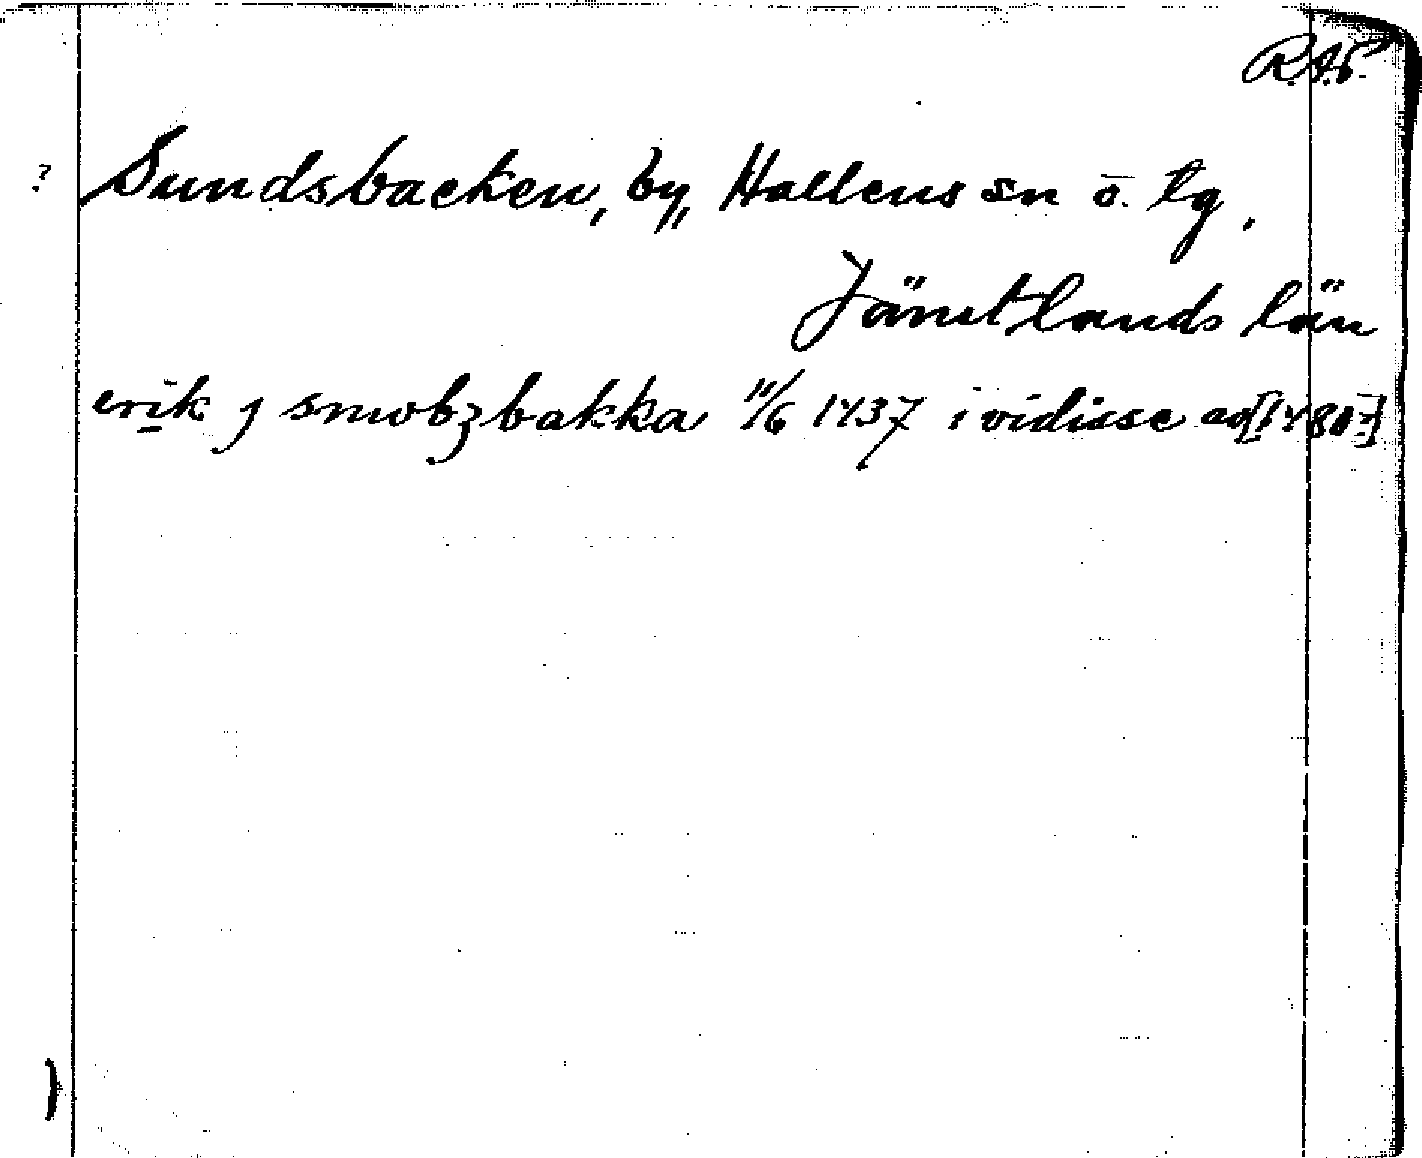 R.A.P.
? Sundsbacken, by, Hallens sn o. tg,
Jämtlands län
erik j smobzbakka 11/6 1437 i vidisse ad [1480-t]